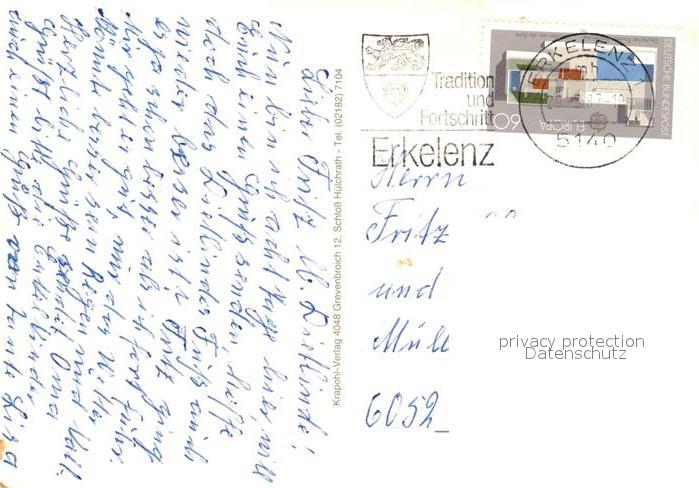 Lieber Fritz u. Dietlinde!
Nun bin ich acht Tage hier, will
Euch einen Gruß senden, hoffe
doch das Dietlindes Fuß auch
wieder besser ist. Fritz ging
es ja schon besser als ich fort fuhr.
Mir geht es gut, nur das Wetter
könnte besser sein Regen und kalt.
Herzliche Grüße sendet Oma
Grüßt bitte die Enkelkinder
auch einen Gruß von Tante Lisa
Krapohl-Verlag 4048 Grevenbroich 12, Schloß Hülchrath - Tel. (02182) 7104
Tradition
und
Fortschritt
Erkelenz
ERKELENZ
mb
5140
DEUTSCHE BUNDESPOST
60
EUROPA
Herrn
Fritz
und
Müll
6052
privacy protection
Datenschutz